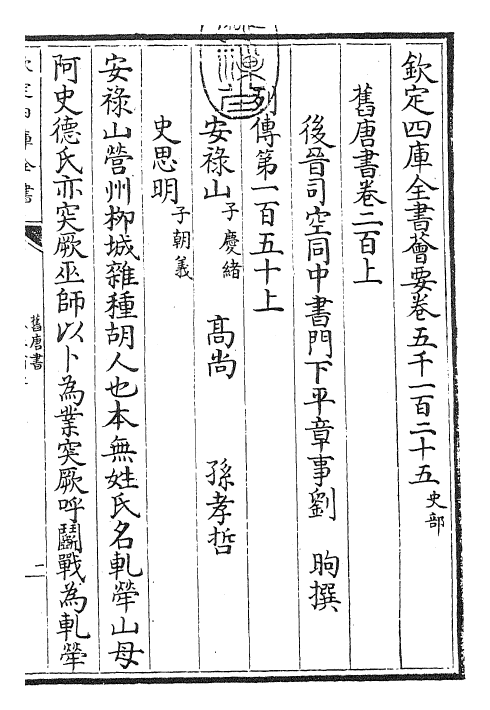 欽定四庫全書薈要卷五千一百二十五 史部
舊唐書卷二百上
後晉司空同中書門下平章事劉 昫撰
列傳第一百五十上
安祿山 子慶緒 高尚 孫孝哲
史思明 子朝義
安祿山營州柳城雜種胡人也本無姓氏名軋犖山母
阿史德氏亦突厥巫師以卜為業突厥呼鬭戰為軋犖
舊唐書